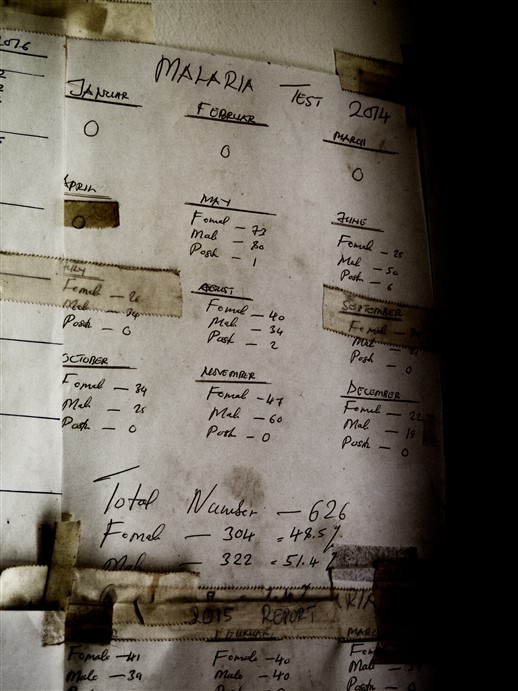 2016
MALARIA TEST 2014
JANUAR
0
FEBRUAR
0
MARCH
0
APRIL
0
MAY
Femal - 73
Mal - 80
Posh - 1
JUNE
Femal - 25
Mal - 50
Posh - 6
JULY
Femal - 26
Mal - 24
Posh - 0
AUGUST
Femal - 40
Mal - 34
Posh - 2
SEPTEMBER
Femal -
Mal -
Posh - 0
OCTOBER
Femal - 34
Mal - 25
Posh - 0
NOVEMBER
Femal - 47
Mal - 60
Posh - 0
DECEMBER
Femal - 22
Mal - 18
Posh - 0
Total Number - 626
Femal - 304 = 48.5%
Mal - 322 = 51.4%
2015 REPORT
Female - 41
Male - 39
Female - 40
Male - 40